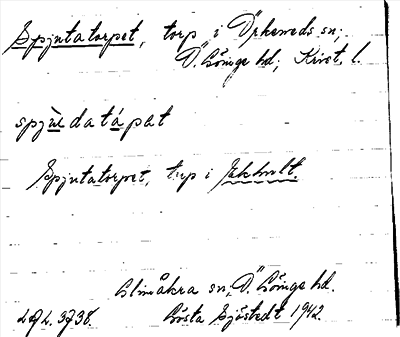 Spjutatorpet, torp i Örkeneds sn;
Ö. Göinge hd; Krist. l.
spjùedatápat
Spjutatorpet, torp i Ekhult.
Glimåkra sn, Ö. Göinge hd.
Gösta Sjöstedt 1942.